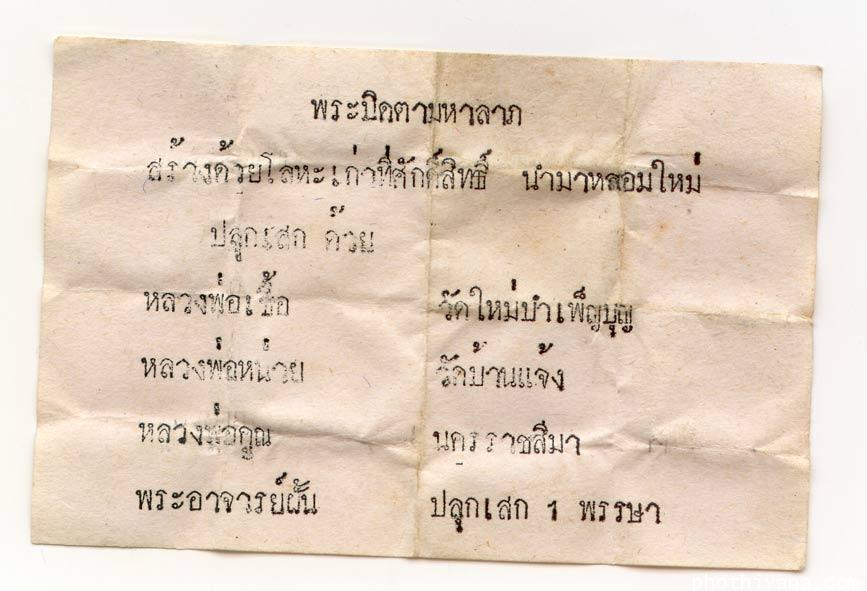 พระปิดตามหาลาภ
สร้างด้วยโลหะเก่าที่ศักดิ์สิทธิ์ นำมาหลอมใหม่
ปลุกเสก ด้วย
หลวงพ่อเชื้อ วัดใหม่บำเพ็ญบุญ
หลวงพ่อหน่วย วัดบ้านแจ้ง
หลวงพ่อคูณ นครราชสีมา
พระอาจารย์ฝั้น ปลุกเสก 1 พรรษา
phothiyana.com